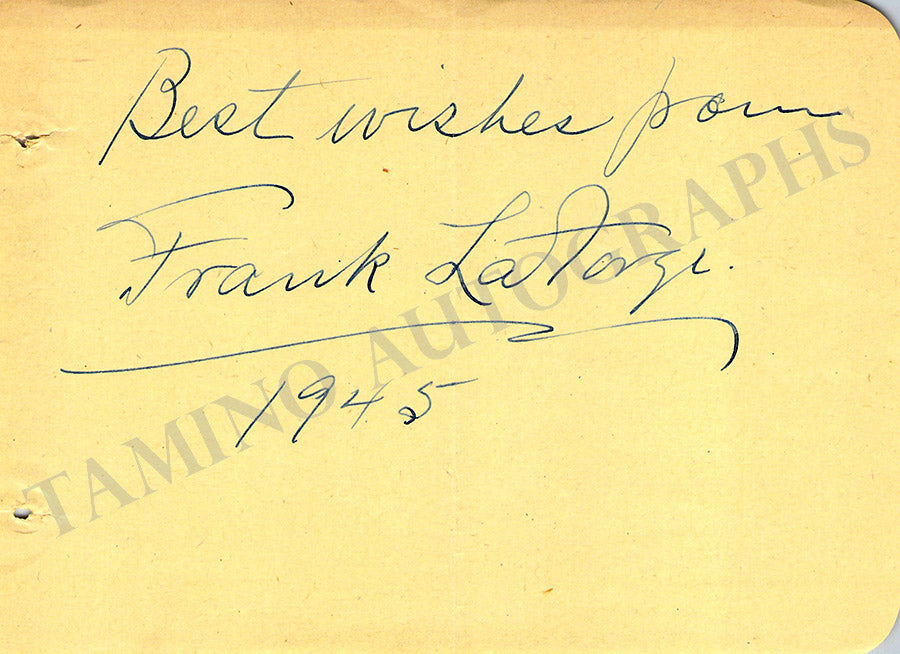 Best wishes from
Frank LaForge.
1945
TAMINO AUTOGRAPHS